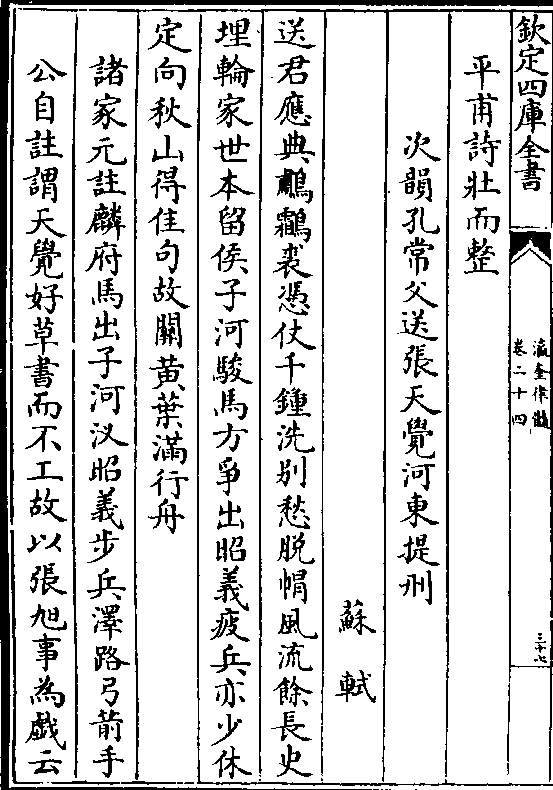 欽定四庫全書
瀛奎律髓
卷二十四
三十七
平甫詩壯而整
次韻孔常父送張天覺河東提刑
蘇軾
送君應典鷫鸘裘憑仗千鍾洗別愁脫帽風流餘長史
埋輪家世本留侯子河駿馬方爭出昭義疲兵亦少休
定向秋山得佳句故關黃葉滿行舟
諸家元註麟府馬出子河汊昭義步兵澤路弓箭手
公自註謂天覺好草書而不工故以張旭事為戲云